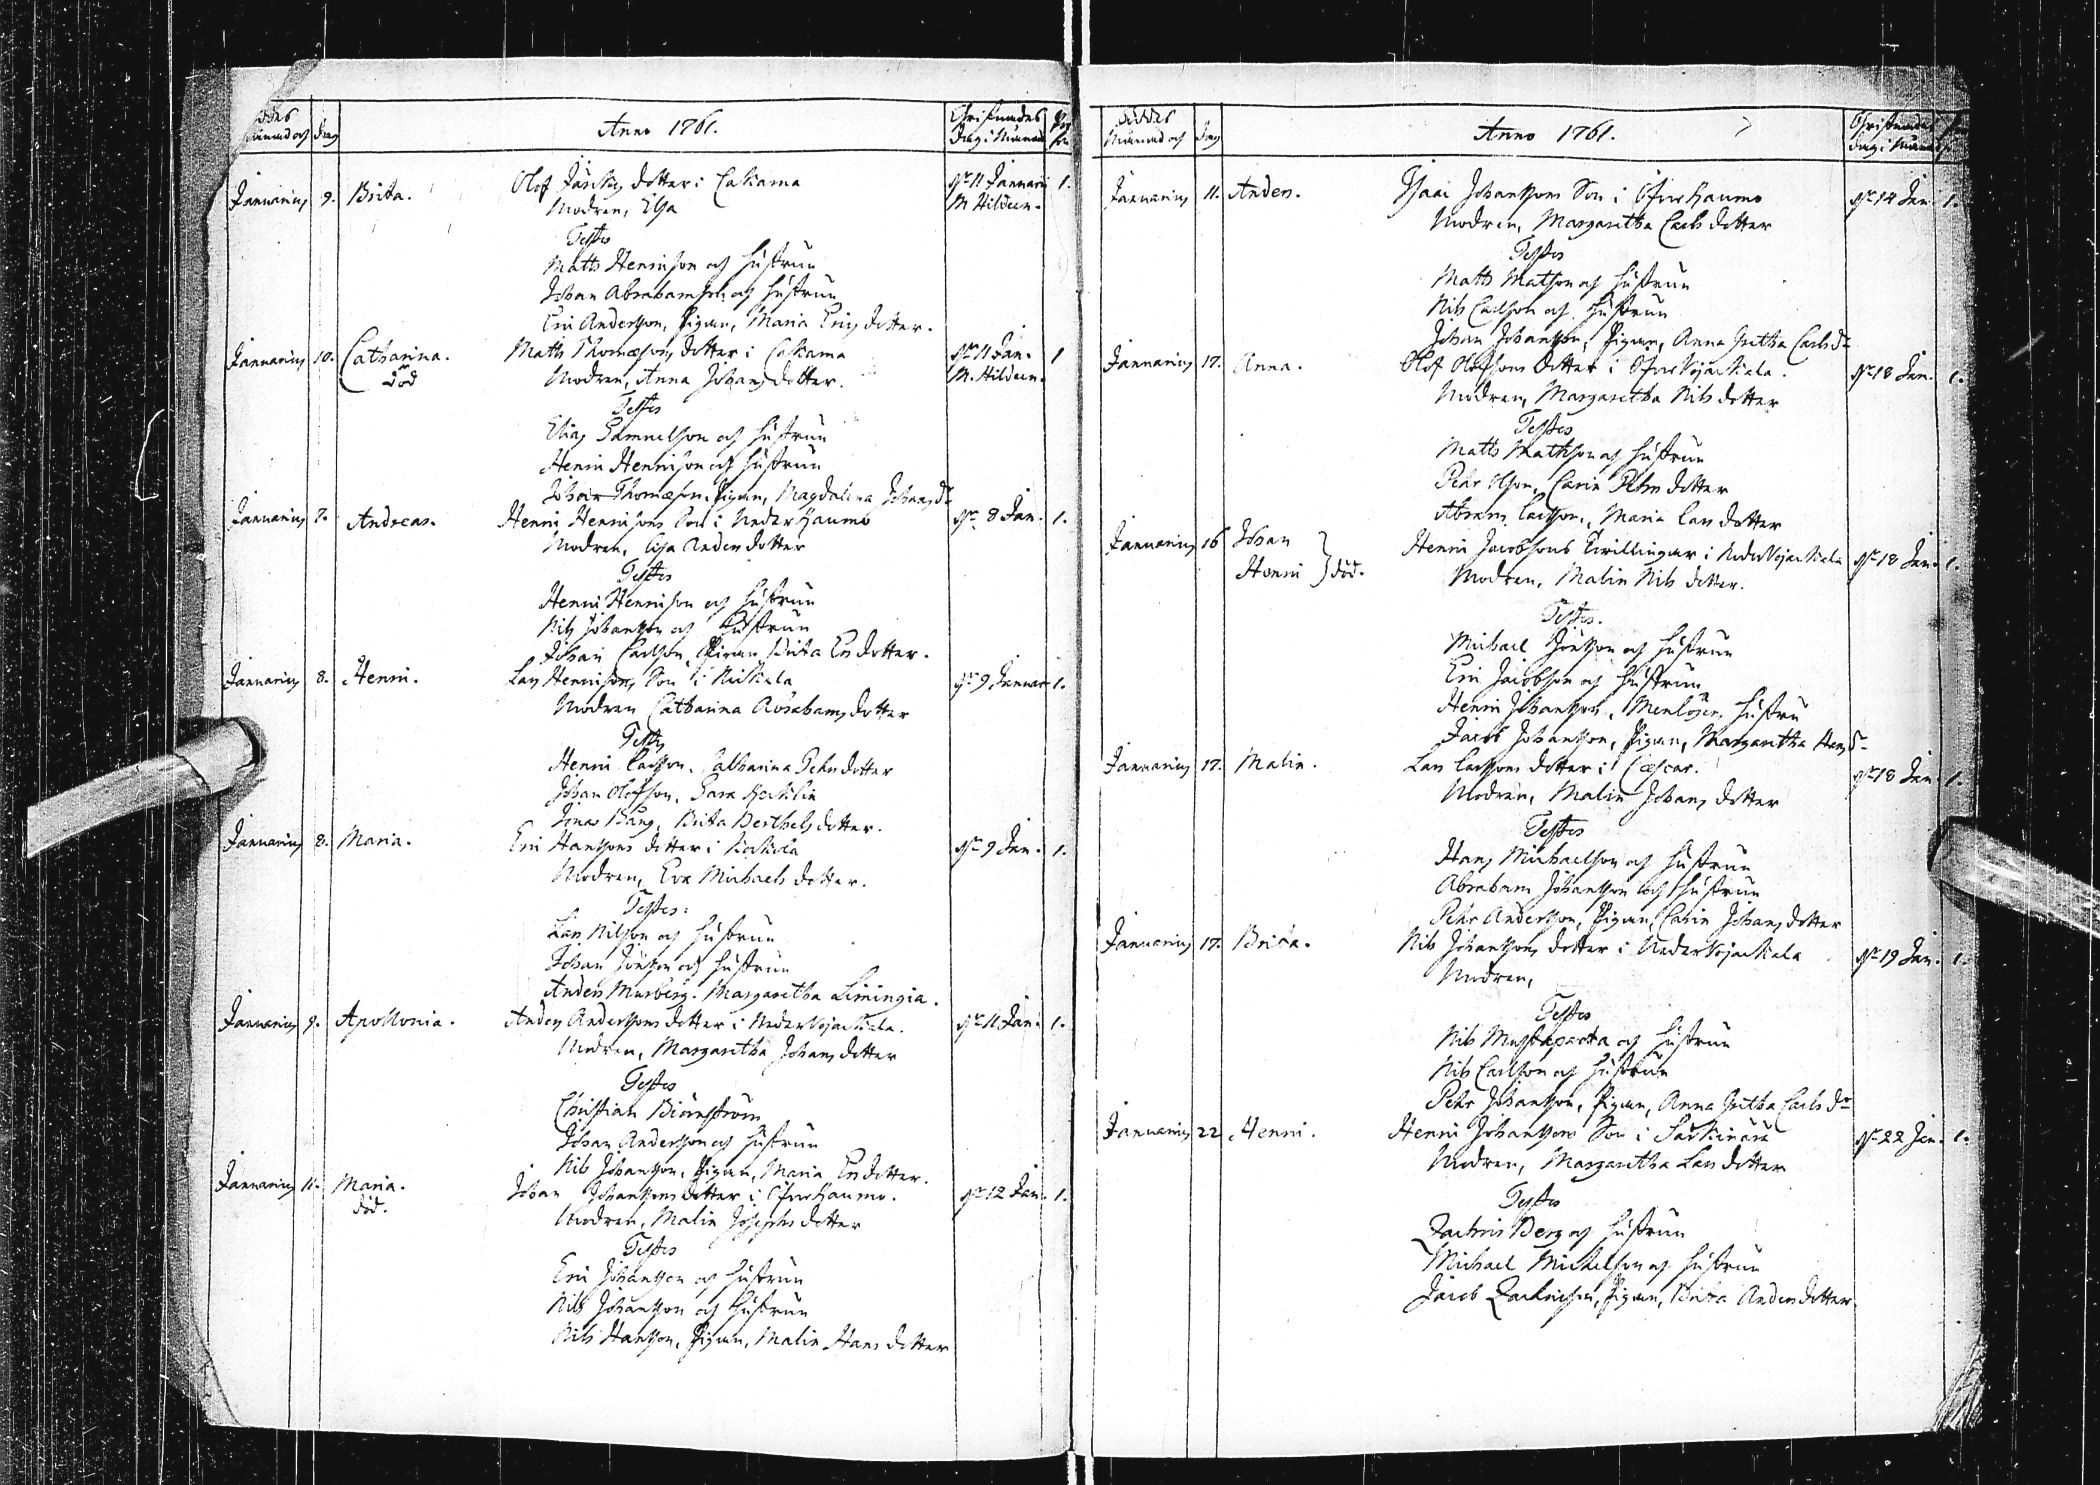 Födes
Månad och dag
Anno 1761.
Christnades
Dag i Månad
Januarius 9. Brita. Olof Dotter i Caskama dn 11 Januarii 1.
Modren, Elsa M Hildeen.
Testes
Matts Henricson och Hustrun
Johan Abrahamson och Hustrun
Eric Andersson, Pigan, Maria Erics dotter.
Januarius 10. Catharina. Matts Thomæsons dotter i Caskama dn 11 Jan. 1
död Modren, Anna Johans dotter. M. Hildeen.
Testes
Elias Samuelson och Hustrun
Henric Henricson och Hustrun
Johan Thomæson, Pigan, Magdalena Johans dr
Januarius 7. Andreas. Henric Henricsons Son i Neder Haumo dn 8 Jan. 1.
Modren, Elsa Anders dotter
Testes
Henric Henricson och Hustrun
Nils Johansson och Hustrun
Johan Carlson, Pigan, Brita Ers dotter.
Januarius 8. Henric. Lars Henricsons Son i dn 9 Januar 1.
Modren Catharina Abrahams dotter
Testes
Henric Larsson, Catharina Pehrs dotter
Johan Olofson, Sara
Jonas Bång, Brita Berthels dotter.
Januarius 8. Maria. Eric Hanssons dotter i dn 9 Jan. 1.
Modren, Eva Michaels dotter.
Testes:
Lars Nilson och Hustrun
Johan Jönsson och Hustrun
Anders Murberg. Margaretha Limingia.
Januarius 9. Apollonia. Anders Anderssons dotter i Neder Vojackala. dn 11 Jan. 1.
Modren, Margaretha Johans dotter
Testes
Christian Biörnström
Johan Andersson och Hustrun
Nils Johansson, Pigan, Maria Ers dotter.
Januarius 11. Maria. Johan Johanssons dotter i Öfver Haumo. dn 12 Jan. 1.
död. Modren, Malin Josephs dotter
Testes
Eric Johansson och Hustrun
Nils Johansson och Hustrun
Nils Hansson, Pigan, Malin Hans dotter
Födes
Månad och dag
Anno 1761.
Christnades
dag i Månad
Januarius 11. Anders. Isaac Johanssons Son i Öfver Haumo dn 14 Jan. 1.
Modren, Margaretha Carls dotter
Testes
Matts Matsson och Hustrun
Nils Carlson och Hustrun
Johan Johansson, Pigan, Anna Gretha Carls dr
Januarius 17. Anna. Olof Olofsons Dotter i Öfver Vojackala. dn 18 Jan. 1.
Modren, Margaretha Nils dotter
Testes
Matts Mathson och Hustrun
Pehr Olson, Carin Pehrs dotter
Abram Carlson, Maria Lars dotter
Januarius 16 Johan Henric Jacobsons Tvillingar i Neder Vojackala dn 18 Jan. 1.
Henric } död. Modren, Malin Nils dotter.
Testes.
Michael Jönsson och Hustrun
Eric Jacobson och Hustrun
Henric Johansson, Hustru
Jacob Johansson, Pigan, Margaretha Hans dr
Januarius 17. Malin. Lars Larssons dotter i dn 18 Jan. 1.
Modren, Malin Johans dotter
Testes
Hans Michaelson och Hustrun
Abraham Johansson och Hustrun
Pehr Andersson, Pigan, Carin Johans dotter
Januarius 17. Brita. Nils Johanssons dotter i Neder Vojackala dn 19 Jan. 1.
Modren,
Testes
Nils Mustaparta och Hustrun
Nils Carlson och Hustrun
Pehr Johansson, Pigan, Anna Gretha Carls dr
Januarius 22 Henric. Henric Johanssons Son i dn 22 Jan. 1.
Modren, Margaretha Lars dotter
Testes
Zachris Berg och Hustrun
Michael Michelson och Hustrun
Jacob Zachrisson, Pigan, Brita Anders dotter.